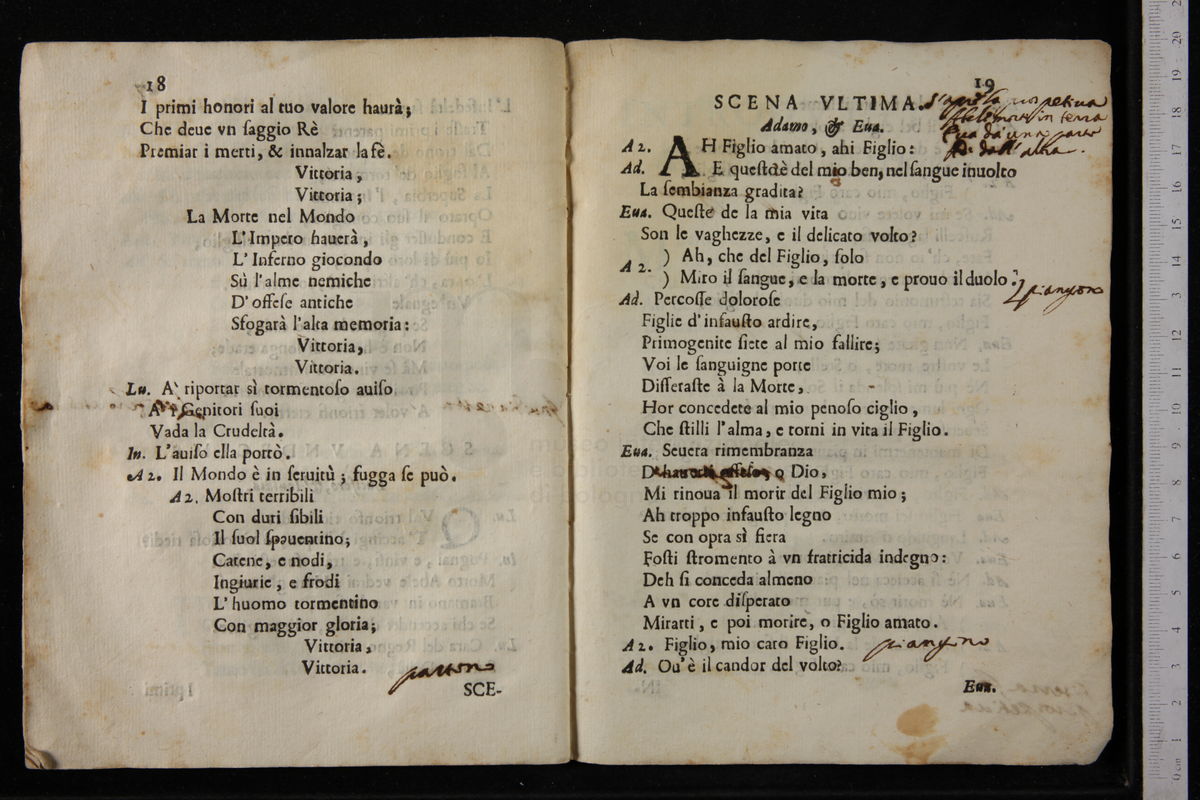 18
I primi honori al tuo valore haurà;
Che deue vn saggio Rè
Premiar i merti, & innalzar la fè.
Vittoria,
Vittoria;
La Morte nel Mondo
L'Impero hauerà,
L'Inferno giocondo
Sù l'alme nemiche
D'offese antiche
Sfogarà l'alta memoria:
Vittoria,
Vittoria.
Lu. A' riportar sì tormentoso auiso
A' Genitori suoi
Vada la Crudeltà.
In. L'auiso ella portò.
A 2. Il Mondo è in seruitù; fugga se può.
A 2. Mostri terribili
Con duri sibili
Il suol spauentino;
Catene, e nodi,
Ingiurie, e frodi
L'huomo tormentino
Con maggior gloria;
Vittoria,
Vittoria. partono
SCE-
19
SCENA VLTIMA. s'apre la prospetiua
Abele morto in terra
Adamo, & Eua. Eua da una parte
Ad. dall'altra.
A 2. AH Figlio amato, ahi Figlio:
Ad. E questo è del mio ben, nel sangue inuolto
La sembianza gradita?
Eua. Queste de la mia vita
Son le vaghezze, e il delicato volto?
A 2. ) Ah, che del Figlio, solo
) Miro il sangue, e la morte, e prouo il duolo?
piangono
Ad. Percosse dolorose
Figlie d'infausto ardire,
Primogenite siete al mio fallire;
Voi le sanguigne porte
Disseraste à la Morte,
Hor concedete al mio penoso ciglio,
Che stilli l'alma, e torni in vita il Figlio.
Eua. Seuera rimembranza
D'hauerti offeso, o Dio,
Mi rinoua il morir del Figlio mio;
Ah troppo infausto legno
Se con opra sì fiera
Fosti stromento à vn fratricida indegno:
Deh si conceda almeno
A vn core disperato
Mirarti, e poi morire, o Figlio amato.
A 2. Figlio, mio caro Figlio. piangono
Ad. Ou'è il candor del volto?
Eua.